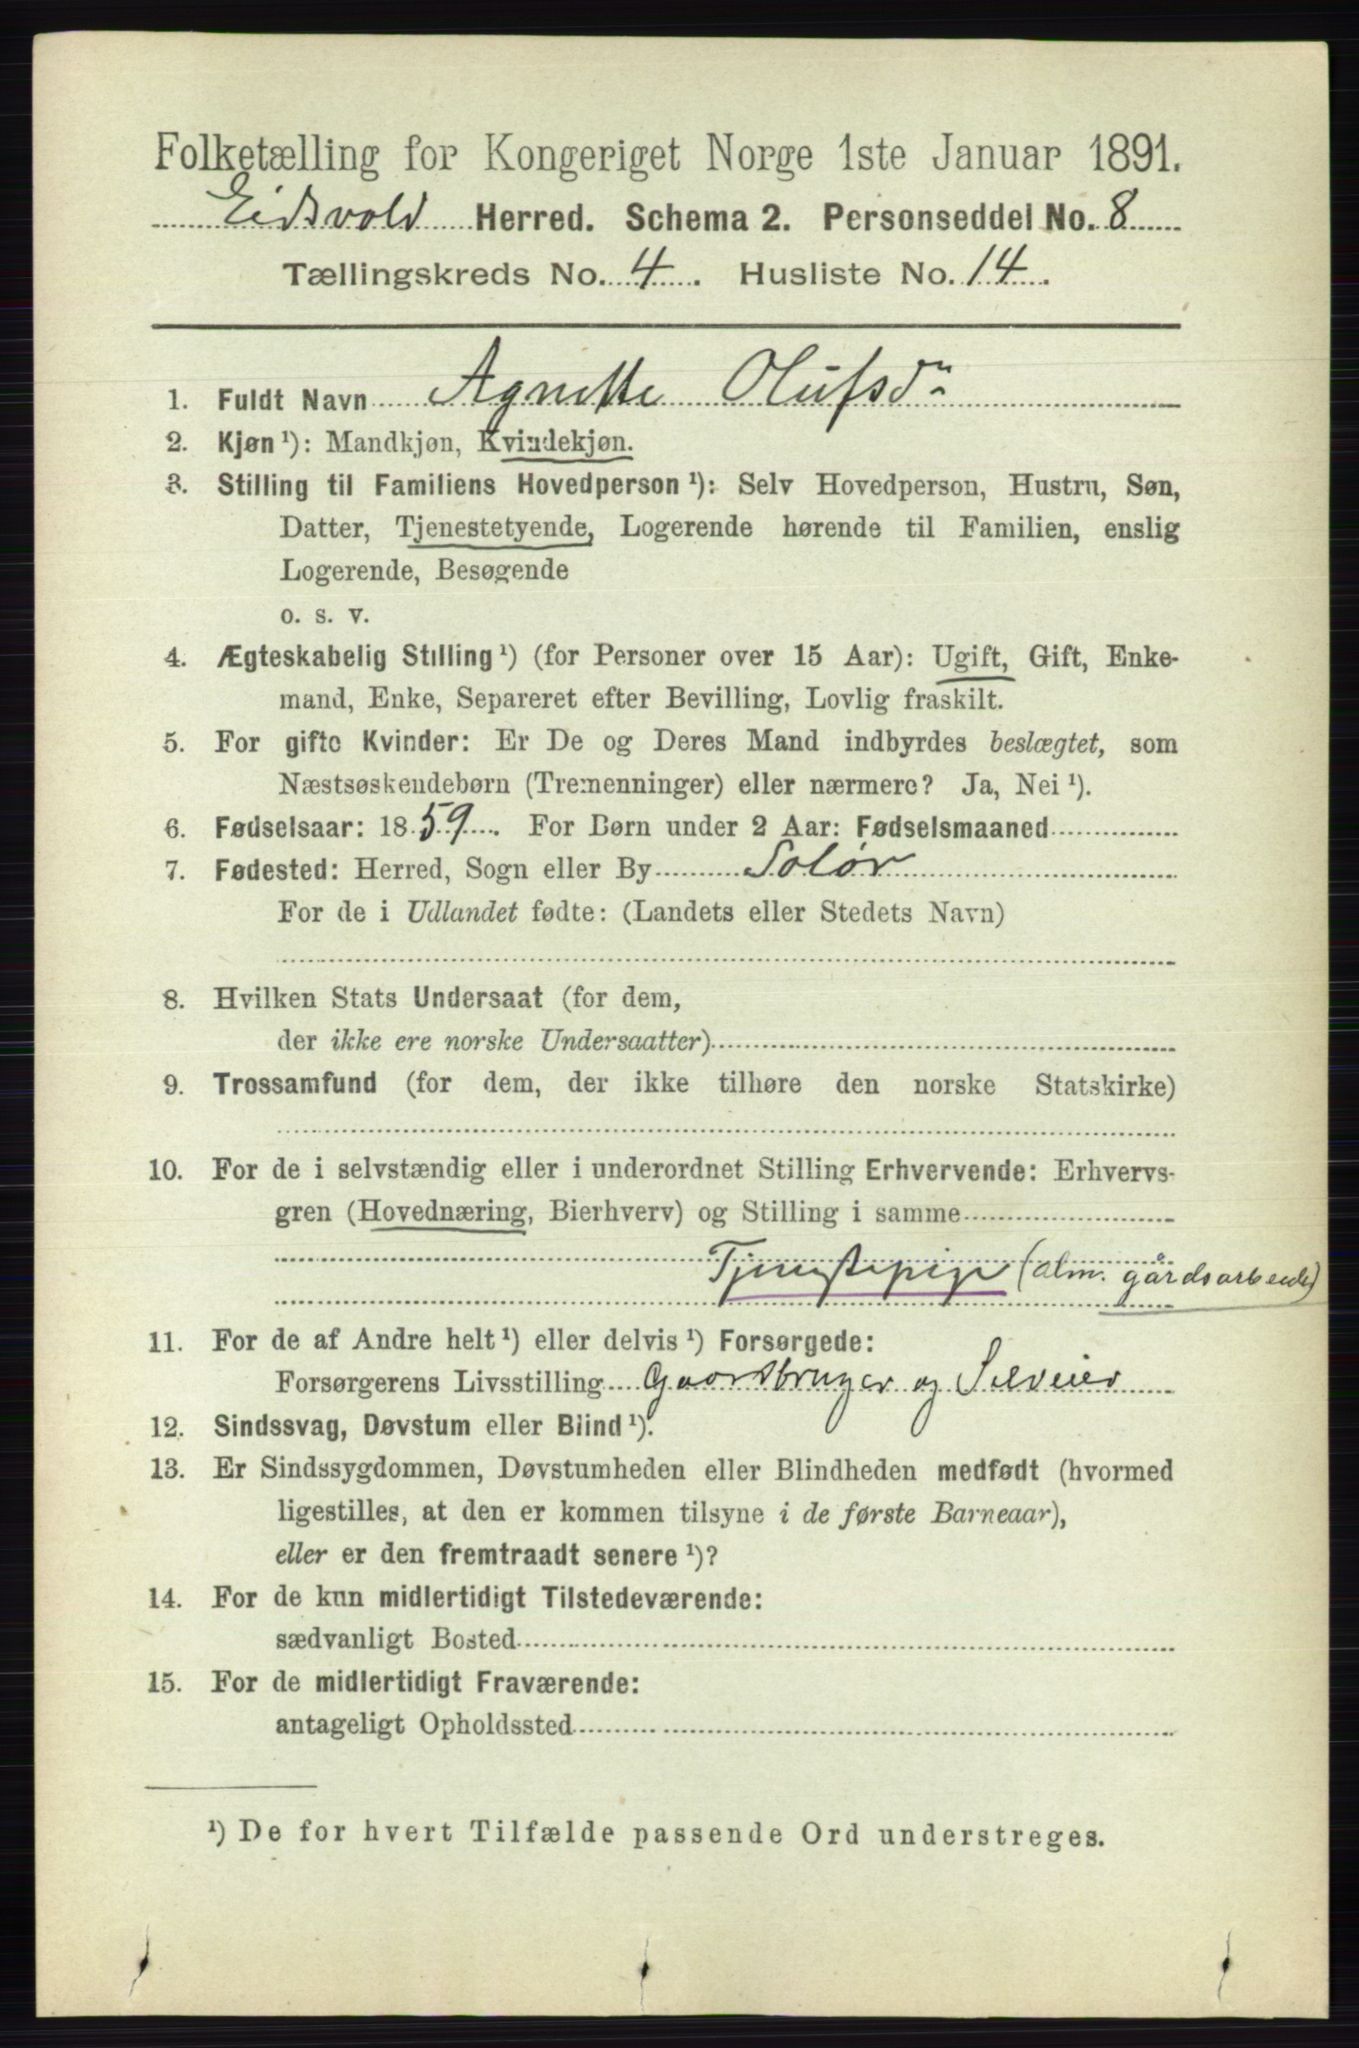 Folketælling for Kongeriget Norge 1ste Januar 1891.
Eidsvold Herred. Schema 2. Personseddel No. 8
Tællingskreds No. 4. Husliste No. 14.
1. Fuldt Navn Agnette Olufsdr
2. Kjøn ¹): Mandkjøn, Kvindekjøn.
3. Stilling til Familiens Hovedperson ¹): Selv Hovedperson, Hustru, Søn,
Datter, Tjenestetyende, Logerende hørende til Familien, enslig
Logerende, Besøgende
o. s. v.
4. Ægteskabelig Stilling ¹) (for Personer over 15 Aar): Ugift, Gift, Enke-
mand, Enke, Separeret efter Bevilling, Lovlig fraskilt.
5. For gifte Kvinder: Er De og Deres Mand indbyrdes beslægtet, som
Næstsøskendebørn (Tremenninger) eller nærmere? Ja, Nei ¹).
6. Fødselsaar: 1859. For Børn under 2 Aar: Fødselsmaaned
7. Fødested: Herred, Sogn eller By Solør
For de i Udlandet fødte: (Landets eller Stedets Navn)
8. Hvilken Stats Undersaat (for dem,
der ikke ere norske Undersaatter)
9. Trossamfund (for dem, der ikke tilhøre den norske Statskirke)
10. For de i selvstændig eller i underordnet Stilling Erhvervende: Erhvervs-
gren (Hovednæring, Bierhverv) og Stilling i samme
Tjenestepige (alm. gårdsarbeide)
11. For de af Andre helt ¹) eller delvis ¹) Forsørgede:
Forsørgerens Livsstilling Gaardbruger og Selveier
12. Sindssvag, Døvstum eller Blind ¹).
13. Er Sindssygdommen, Døvstumheden eller Blindheden medfødt (hvormed
ligestilles, at den er kommen tilsyne i de første Barneaar),
eller er den fremtraadt senere ¹)?
14. For de kun midlertidigt Tilstedeværende:
sædvanligt Bosted
15. For de midlertidigt Fraværende:
antageligt Opholdssted
¹) De for hvert Tilfælde passende Ord understreges.